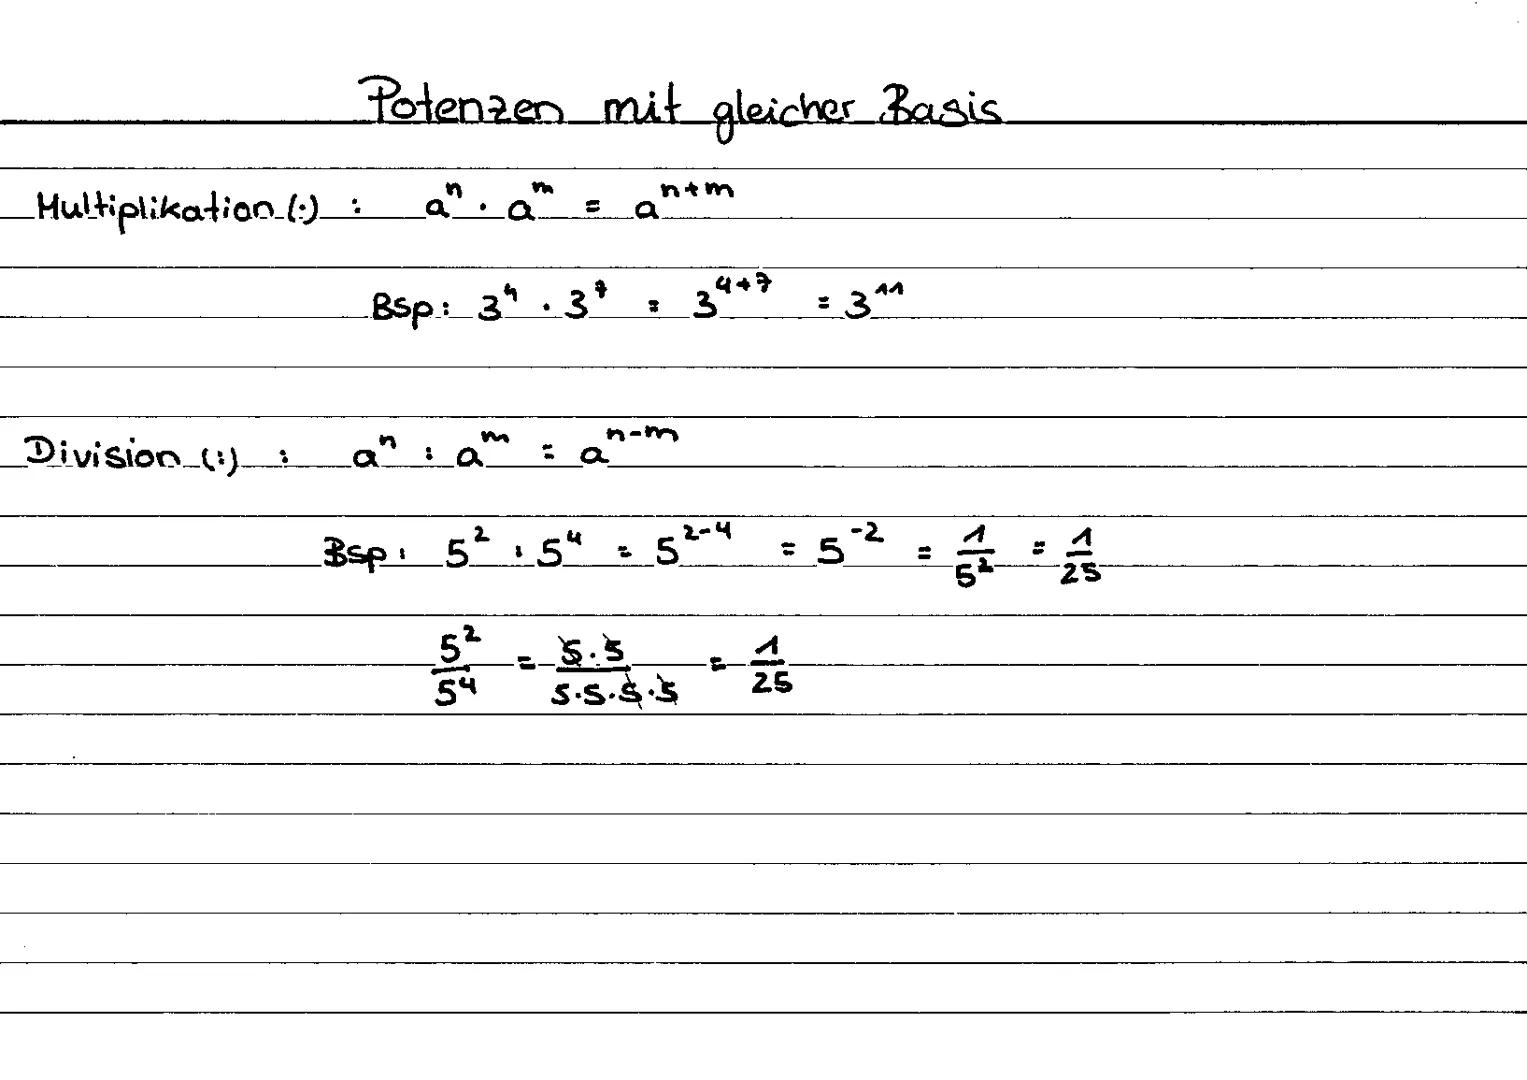 Potenzen mit gleicher Basis
Multiplikation (·) : aⁿ · aᵐ = aⁿ⁺ᵐ
Bsp: 3⁴ · 3⁷ = 3⁴⁺⁷ = 3¹¹
Division (:) : aⁿ : aᵐ = aⁿ⁻ᵐ
Bsp: 5² : 5⁴ = 5²⁻⁴ = 5⁻² = 1/5² = 1/25
5²/5⁴ = 5·5/5·5·5·5 = 1/25